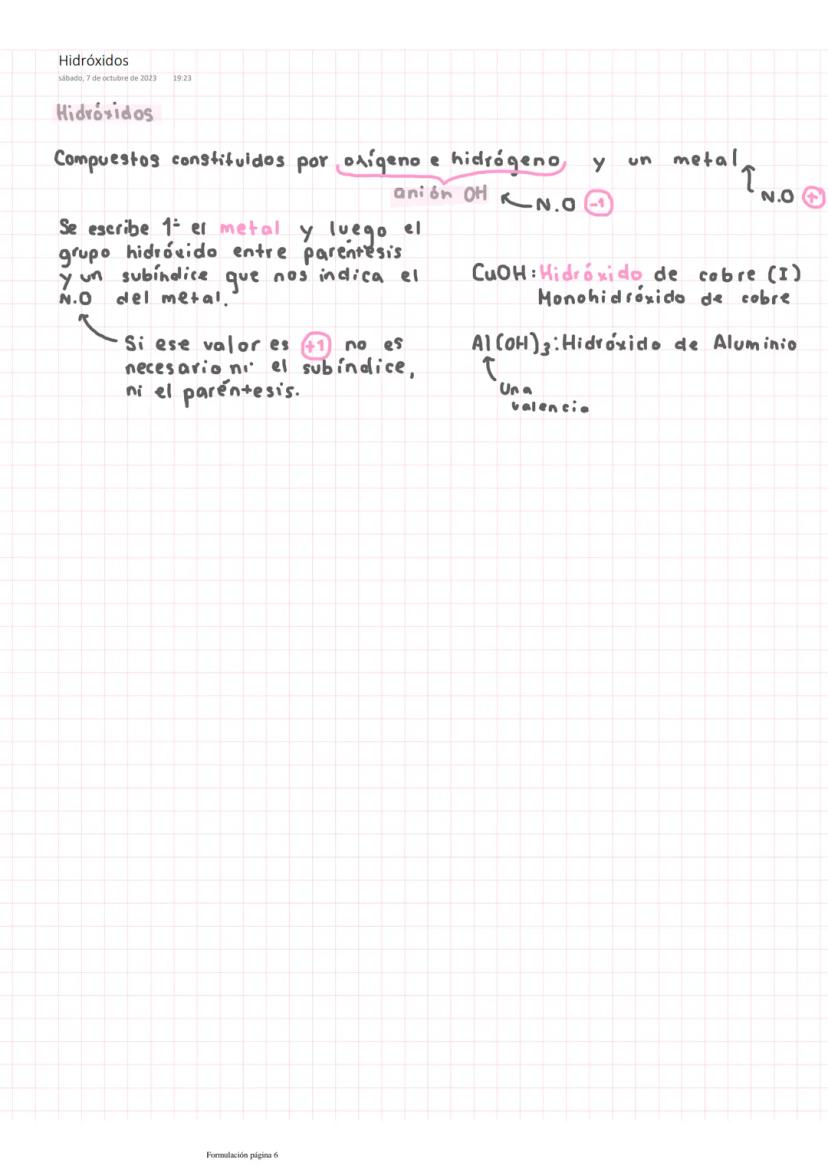 Hidróxidos
sábado, 7 de octubre de 2023 19:23
Hidróxidos
Compuestos constituidos por oxígeno e hidrógeno y un metal
anión OH N.O -1
N.O +
Se escribe 1º el metal y luego el
grupo hidróxido entre paréntesis
y un subíndice que nos indica el
N.O del metal.
Si ese valor es +1 no es
necesario ni el subíndice,
ni el paréntesis.
CuOH: Hidróxido de cobre (I)
Monohidróxido de cobre
Al(OH)₃: Hidróxido de Aluminio
Una
valencia
Formulación página 6